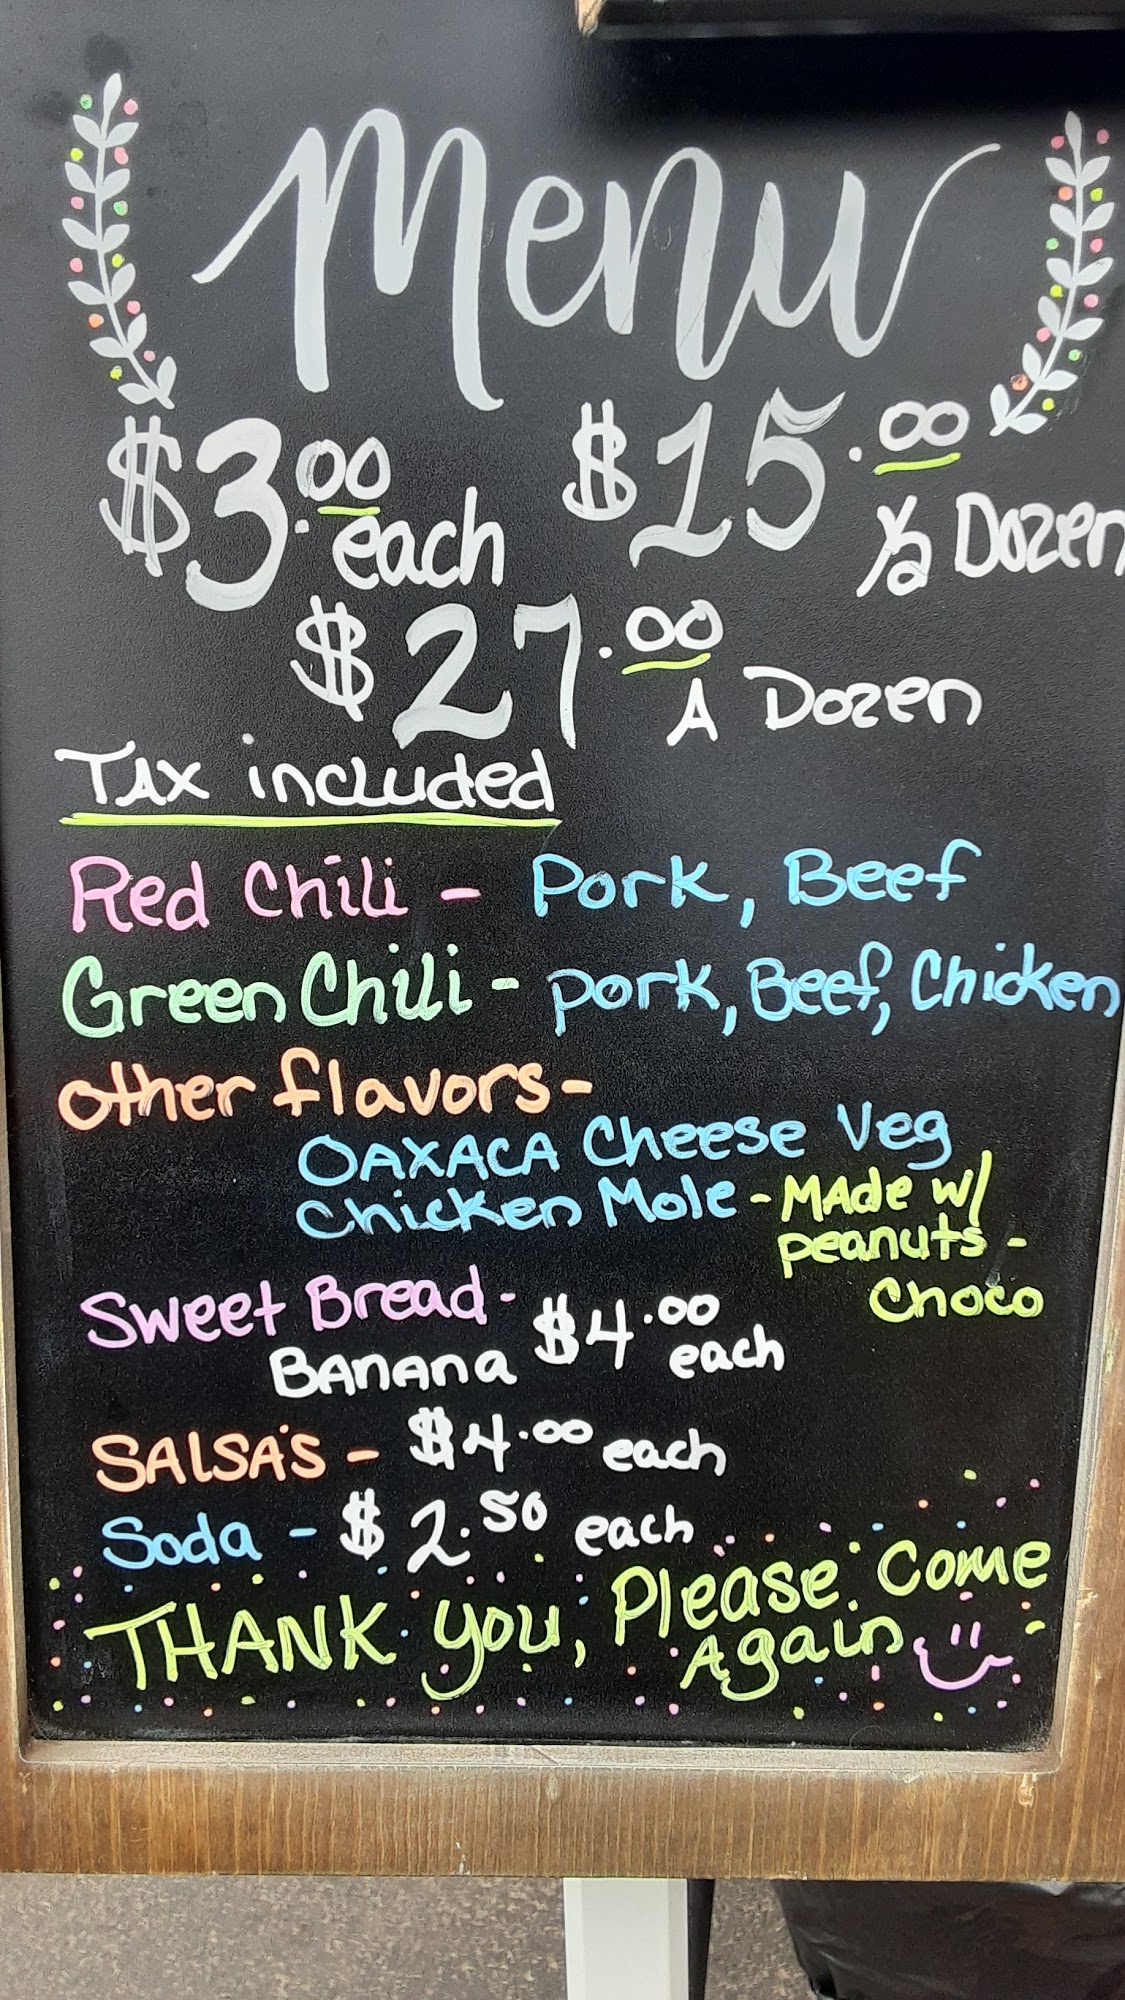 Menu
$3.00 each $15.00 ½ Dozen
$27.00 A Dozen
TAX included
Red Chili - Pork, Beef
Green Chili - Pork, Beef, Chicken
other flavors -
OAXACA Cheese Veg
Chicken Mole - MAde w/
peanuts -
Choco
Sweet Bread -
BANANA $4.00 each
SALSA'S - $4.00 each
Soda - $2.50 each
THANK you, Please Come
Again